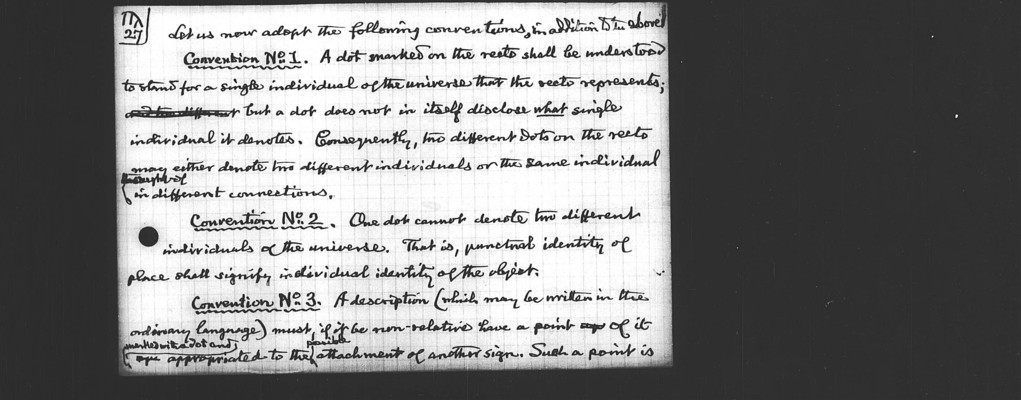 Πλ
27
Let us now adopt the following conventions, in addition to the above:
Convention No. 1. A dot marked on the recto shall be understood
to stand for a single individual of the universe that the recto represents;
but a dot does not in itself disclose what single
individual it denotes. Consequently, two different dots on the recto
may either denote two different individuals or the same individual
thought of
in different connections.
Convention No. 2. One dot cannot denote two different
individuals of the universe. That is, punctual identity of
place shall signify individual identity of the object.
Convention No. 3. A description (which may be written in the
ordinary language) must, if it be non-relative have a point of it
marked with a dot and possible
appropriated to the attachment of another sign. Such a point is